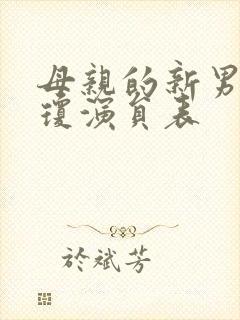 母親的新男
瓊演員表
於斌芳